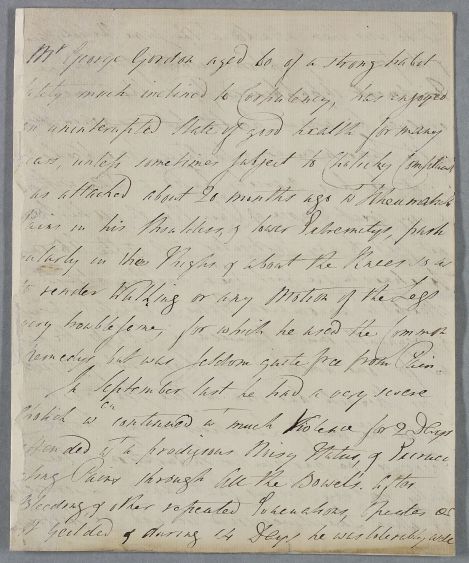 Mr George Gordon aged 60 of a strong habit
lately much inclined to Corpulency, has enjoyed
an uninterupted State of good health for many
years unless sometimes subject to Cholicky Complaints
was attacked about 20 months ago wt Rheumatick
Pains in his Shoulders, & lower Extremitys, partic
ularly in the Thighs & about the Knees so as
to render Walking or any Motion of the Legs
very troublesome, for which he used the Common
Remedies but was seldom quite free from Pain.
In September last he had a very severe
Cholick wch continued wt much Violence for 2 Days
attended wt a prodigious Flatus, &
Pains through all the Bowels. after
Bleeding & other repeated Evacuations,
& during 14 Days he was